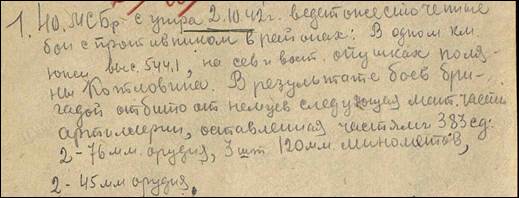 1. 40. МСБр с утра 2.10.42 г. ведет ожесточенные
бои с противником в районах: В одном км.
южн. выс. 544,1, на сев и вост. опушках поля-
ны Котловина. В результате боев бри-
гадой отбито от немцев следующая мат. часть
артиллерии, оставленная частями 383 сд.
2-76 мм. орудия, 3 шт. 120 мм. минометов,
2-45 мм орудия.